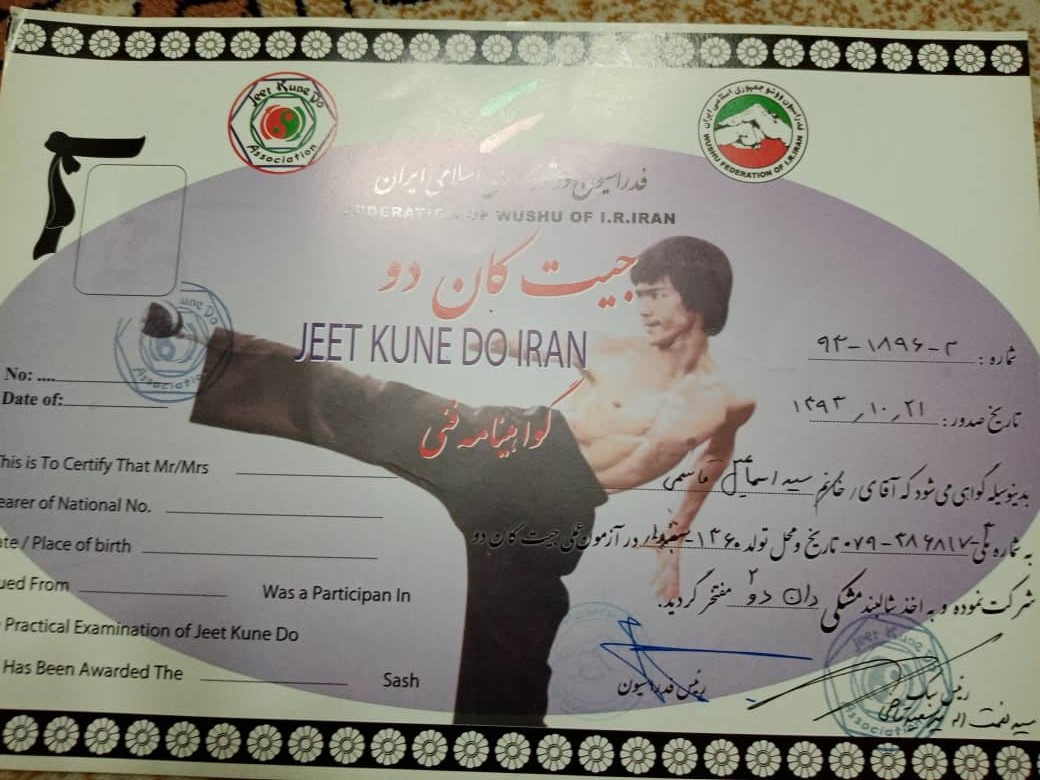 Jeet Kune Do
Association
فدراسیون ووشو جمهوری اسلامی ایران
WUSHU FEDERATION OF I.R.IRAN
فدراسیون ووشو اسلامی ایران
FEDERATION OF WUSHU OF I.R.IRAN
جیت کان دو
JEET KUNE DO IRAN
گواهینامه فنی
شماره : ۹۳-۱۸۹۶-۲
تاریخ صدور: ۱۳۹۳/۱۰/۲۱
بدینوسیله گواهی می شود که آقای / خانم سید اسماعیل قاسمی
به شماره ملی تاریخ و محل تولد ۱۳۶۰ سبزوار در آزمون عملی جیت کان دو
شرکت نموده و به اخذ شالبند مشکی دان دو ۲ مفتخر گردید.
رئیس فدراسیون
رئیس سبک
سید نعمت اله
No: ....
Date of:
This is To Certify That Mr/Mrs
earer of National No.
ate / Place of birth
ued From Was a Participan In
Practical Examination of Jeet Kune Do
Has Been Awarded The Sash
une Do
Association
Jeet Kune Do